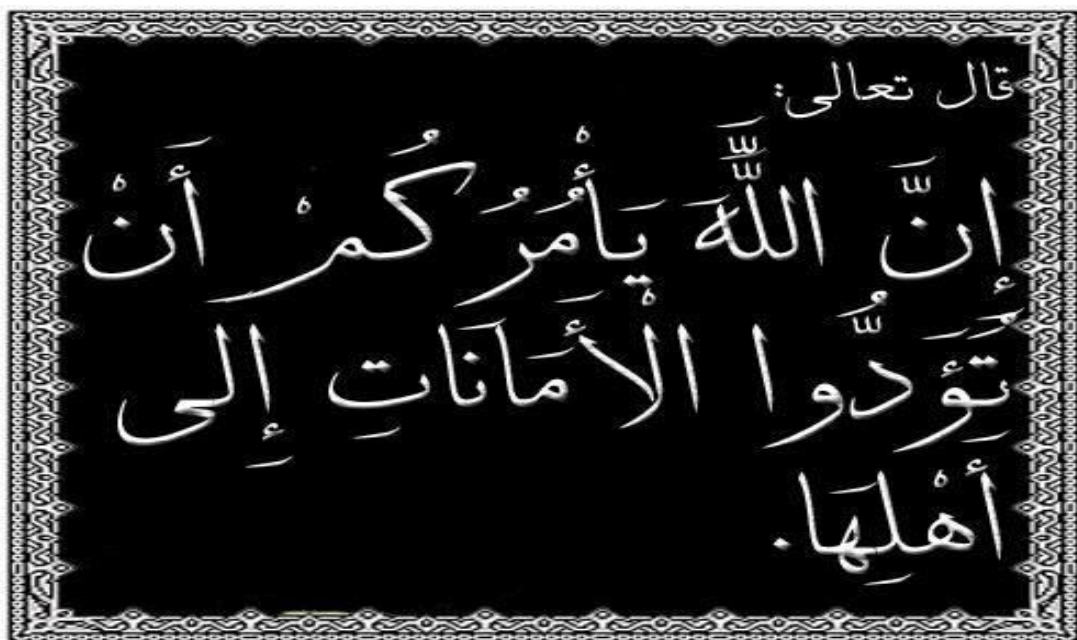 قال تعالى:
إِنَّ اللَّهَ يَأْمُرُكُمْ أَنْ
تُؤَدُّوا الْأَمَانَاتِ إِلَى
أَهْلِهَا.